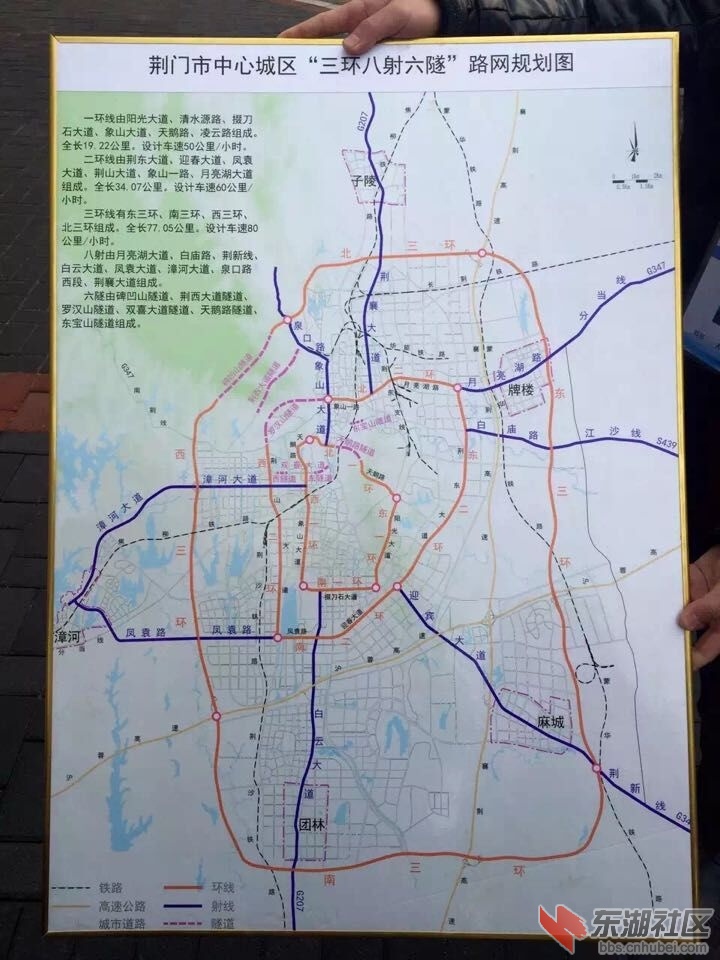 荆门市中心城区“三环八射六隧”路网规划图
一环线由阳光大道、清水源路、掇刀
石大道、象山大道、天鹅路、凌云路组成。
全长19.22公里。设计车速50公里/小时。
二环线由荆东大道、迎春大道、凤袁
大道、荆山大道、象山一路、月亮湖大道
组成。全长34.07公里。设计车速60公里/
小时。
三环线有东三环、南三环、西三环、
北三环组成。全长77.05公里。设计车速80
公里/小时。
八射由月亮湖大道、白庙路、荆新线、
白云大道、凤袁大道、漳河大道、泉口路
西段、荆襄大道组成。
六隧由碑凹山隧道、荆西大道隧道、
罗汉山隧道、双喜大道隧道、天鹅路隧道、
东宝山隧道组成。
G207
子陵
北三环
G347
分当线
月亮湖路
牌楼
白庙路
江沙线
S439
泉口路
象山大道
荆襄大道
象山一路
月亮湖路
罗汉山隧道
东宝山隧道
天鹅路隧道
双喜大道
天鹅路
G347
漳河大道
漳河大道
西三环
东三环
象山大道
阳光大道
南一环
掇刀石大道
漳河
凤袁路
凤袁路
凤袁路
迎春大道
迎宾大道
麻城
荆新线
白云大道
团林
南三环
G207
铁路
环线
高速公路
射线
城市道路
隧道
东湖社区
bbs.cnhubei.com